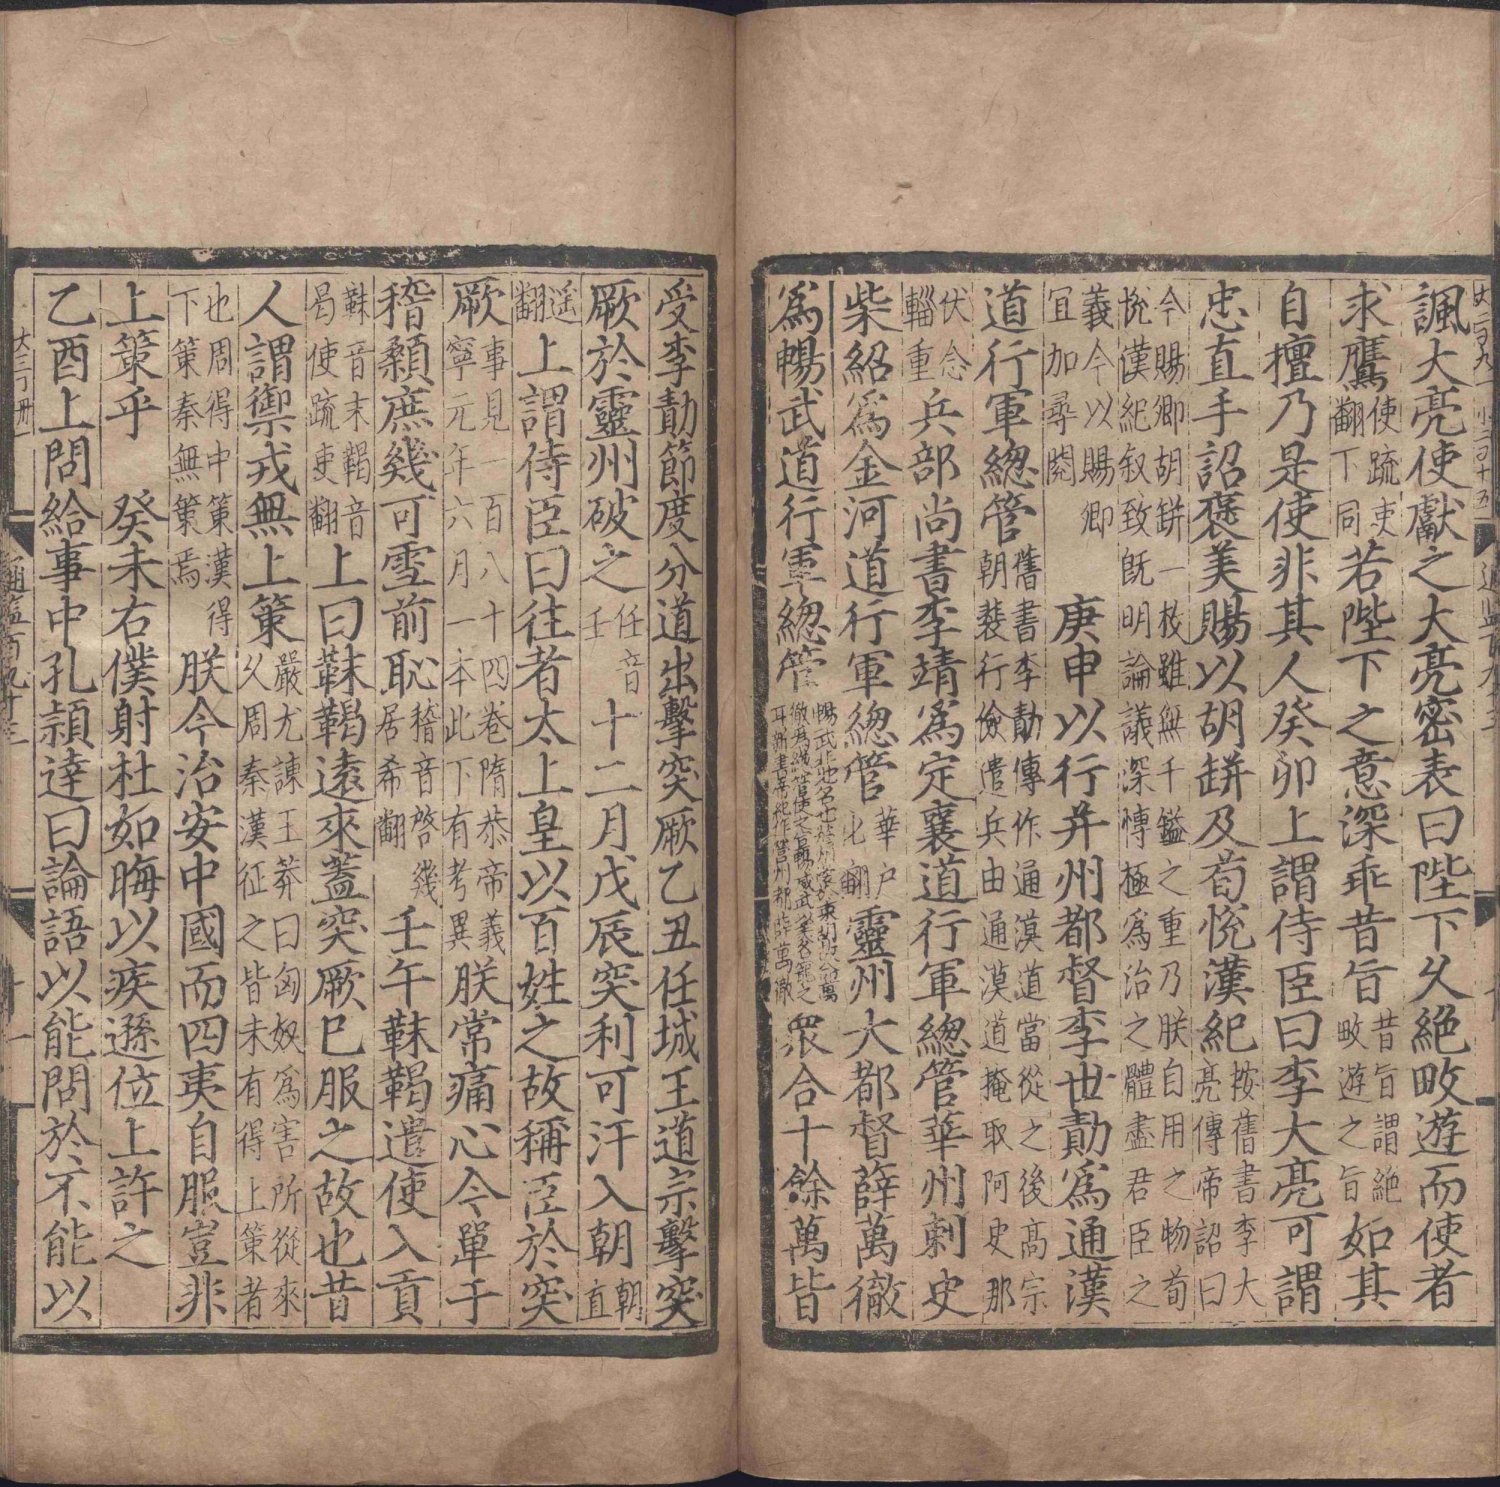 諷大亮使獻之大亮密表曰陛下久絶畋遊而使者
求鷹使疏吏翻下同若陛下之意深乖昔旨昔旨謂絶畋遊之旨如其
自擅乃是使非其人癸卯上謂侍臣曰李大亮可謂
忠直手詔褒美賜以胡缾及荀恱漢紀按舊書李大亮傳帝詔曰
今賜卿胡缾一枚雖無千鎰之重乃朕自用之物荀恱漢紀叙致旣明論議深愽極爲治之體盡君臣之
義今以賜卿宜加尋閱　庚申以行并州都督李世勣爲通漢
道行軍緫管舊書李勣傳作通漠道當從之後高宗朝裴行儉遣兵由通漠道掩取阿史那
伏念輜重兵部尚書李靖爲定襄道行軍緫管華州刺史
柴紹爲金河道行軍緫管華户化翻靈州大都督薛萬徹
爲暢武道行軍緫管暢武非地名也衆合十餘萬皆
受李勣節度分道出擊突厥乙丑任城王道宗擊突
厥於靈州破之任音壬　十二月戊辰突利可汗入朝朝直
遥翻上謂侍臣曰往者太上皇以百姓之故稱臣於突
厥事見一百八十四卷隋恭帝義寧元年六月一本此下有考異朕常痛心今單于
稽顙庶幾可雪前恥稽音啓幾居希翻　壬午靺鞨遣使入貢
靺音末鞨音曷使疏吏翻上曰靺鞨遠來蓋突厥已服之故也昔
人謂禦戎無上策嚴尤諫王莽曰匈奴爲害所從來久周秦漢征之皆未有得上策者
也周得中策漢得下策秦無策焉朕今治安中國而四夷自服豈非
上策乎　癸未右僕射杜如晦以疾遜位上許之
乙酉上問給事中孔頴達曰論語以能問於不能以